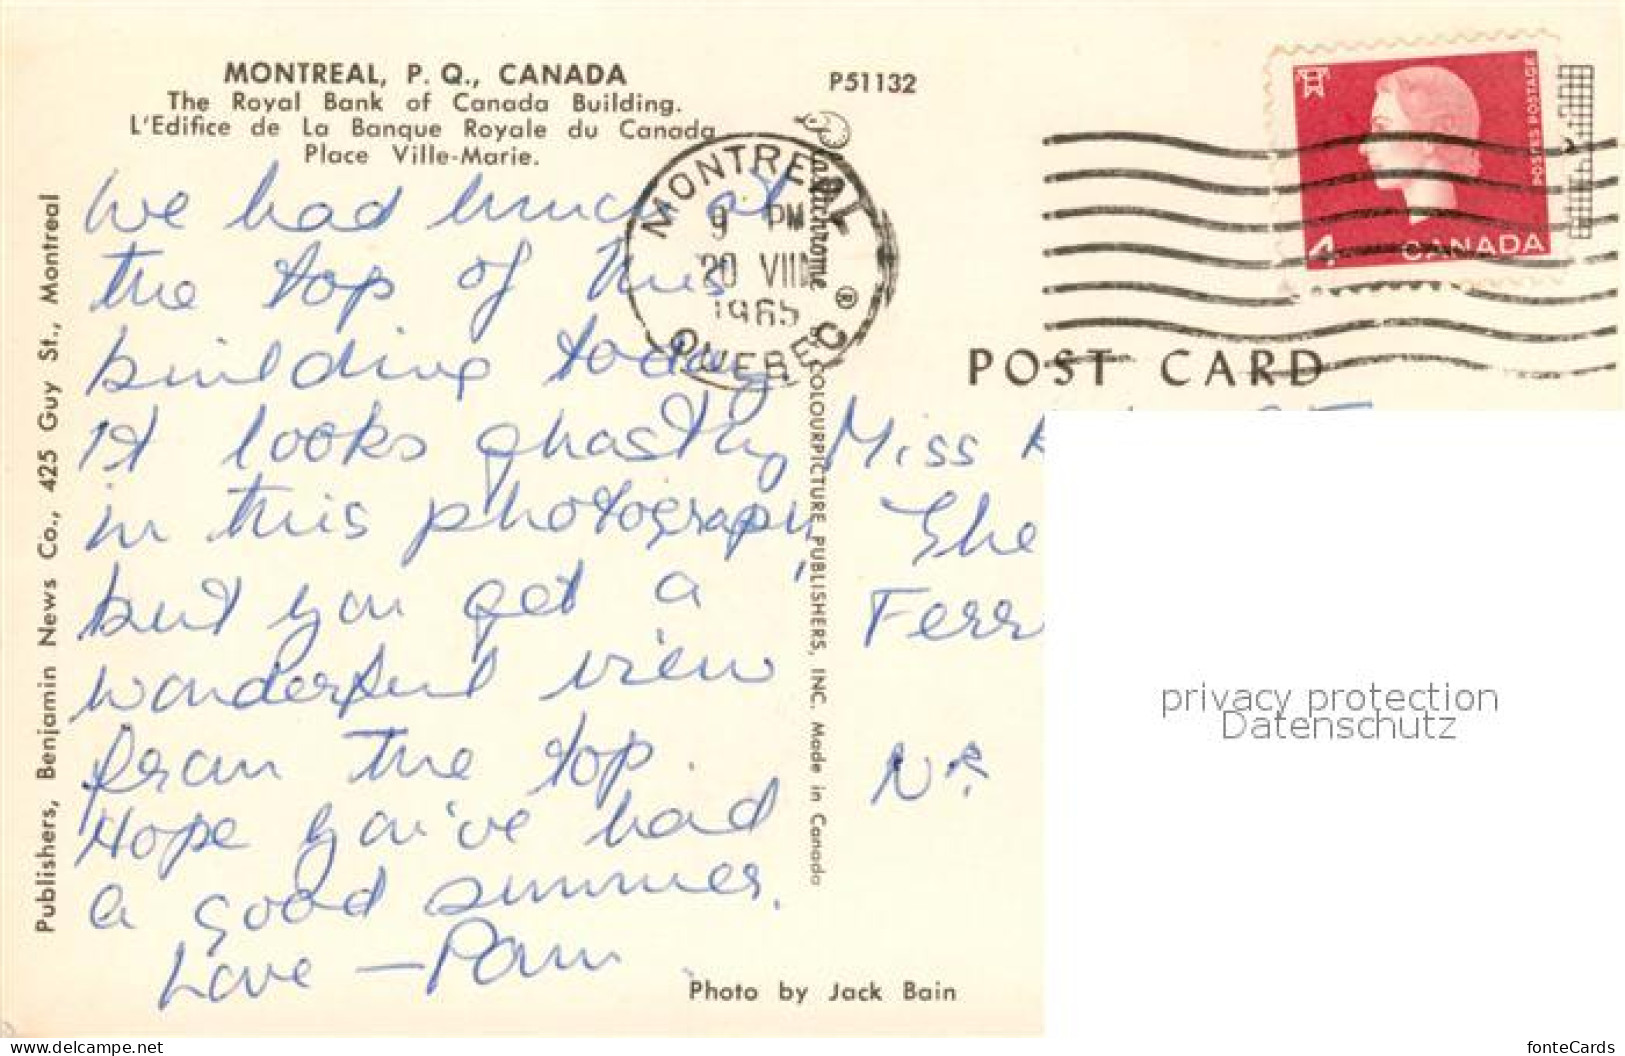 MONTREAL, P. Q., CANADA
The Royal Bank of Canada Building.
L'Edifice de La Banque Royale du Canada
Place Ville-Marie.
P51132
We had lunch at
the top of this
building today
It looks ghastly
in this photograph,
but you get a
wonderful view
from the top.
Hope you've had
a good summer.
Love — Pam
Publishers, Benjamin News Co., 425 Guy St., Montreal
MONTREAL
9 PM
20 VIII
1965
QUEBEC
Plastichrome ®
COLOURPICTURE PUBLISHERS, INC. Made in Canada
POSTES POSTAGE
4 CANADA
POST CARD
Miss
She
Ferr
NR
privacy protection
Datenschutz
Photo by Jack Bain
www.delcampe.net
fonteCards